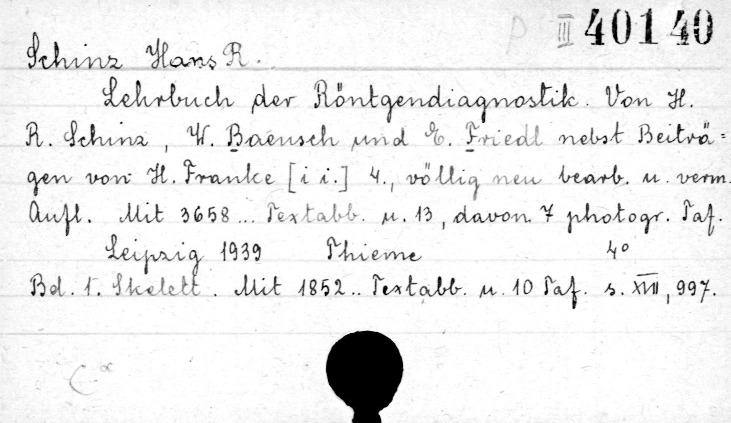 III 401 40
Schinz Hans R.
Lehrbuch der Röntgendiagnostik. Von H.
R. Schinz, W. Baensch und E. Friedl nebst Beiträ=
gen von H. Franke [i i.] 4., völlig neu bearb. u. verm.
Aufl. Mit 3658... Textabb. u. 13, davon 7 photogr. Taf.
Leipzig 1939 Thieme 4°
Bd. 1. Skelett. Mit 1852.. Textabb. u. 10 Taf. s. XVIII, 997.